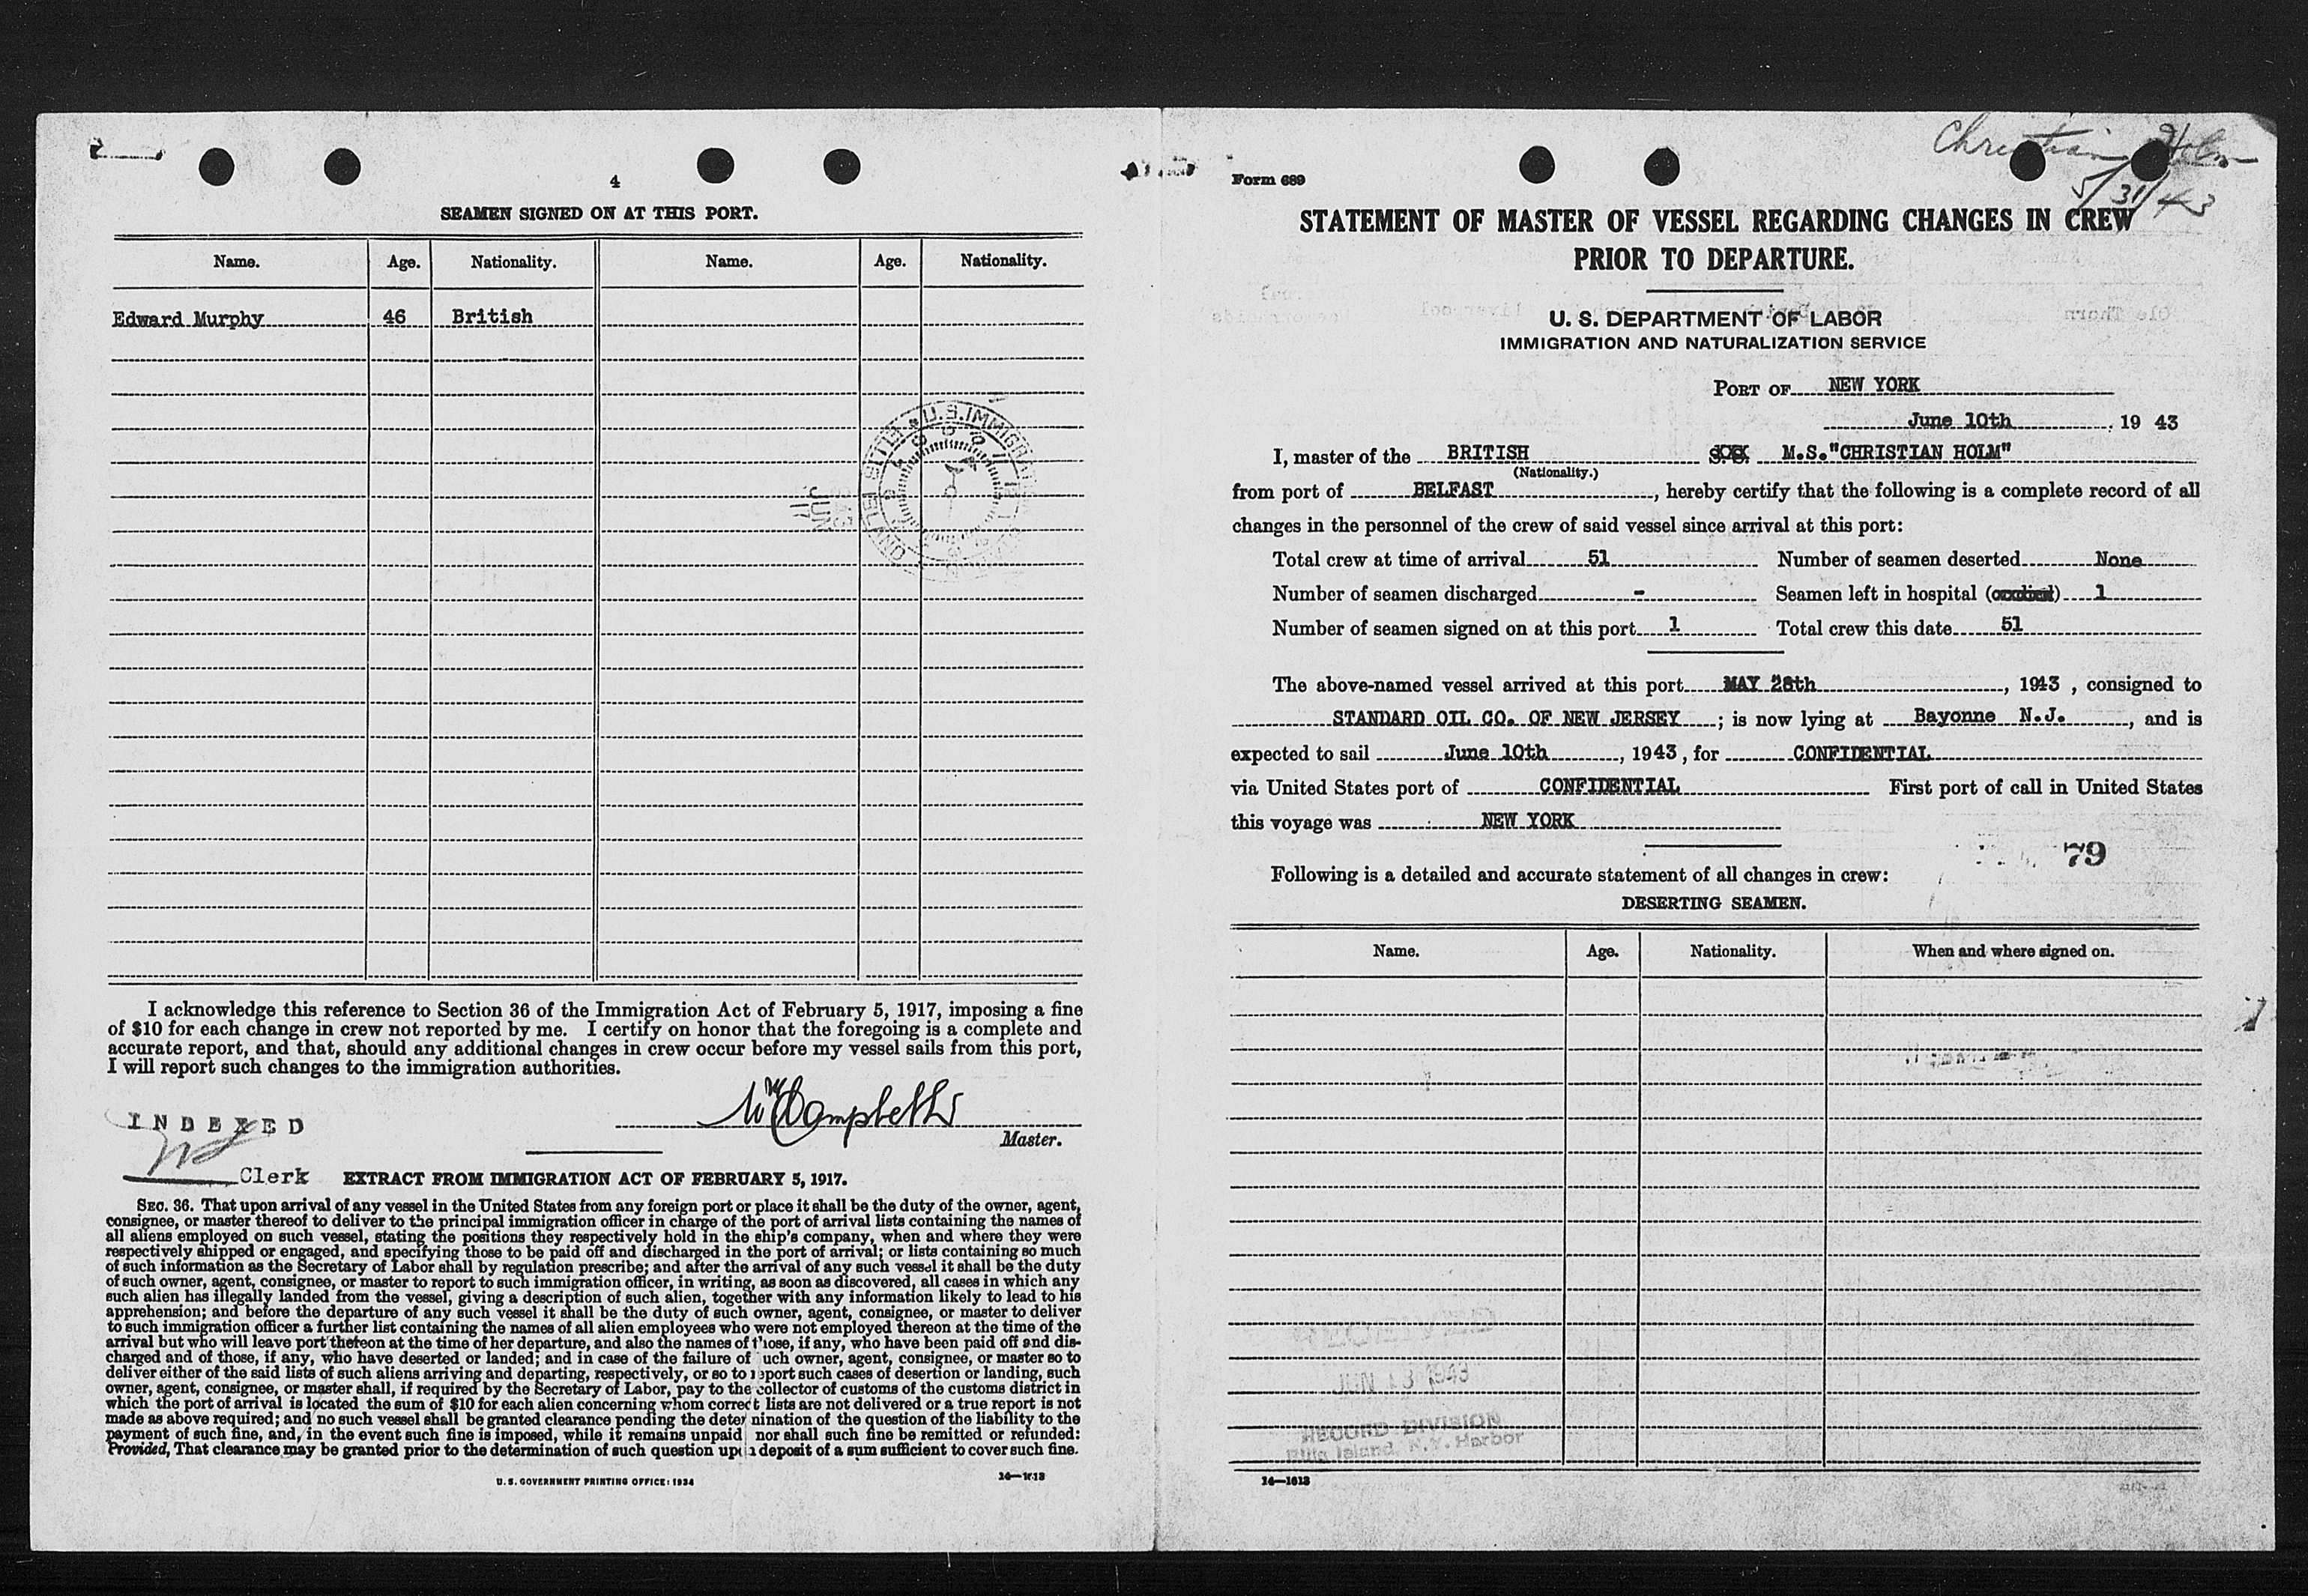 4
SEAMEN SIGNED ON AT THIS PORT.
Name. Age. Nationality. Name. Age. Nationality.
Edward Murphy 46 British
JUN
17
I acknowledge this reference to Section 36 of the Immigration Act of February 5, 1917, imposing a fine
of $10 for each change in crew not reported by me. I certify on honor that the foregoing is a complete and
accurate report, and that, should any additional changes in crew occur before my vessel sails from this port,
I will report such changes to the immigration authorities.
Master.
INDEXED
Clerk
EXTRACT FROM IMMIGRATION ACT OF FEBRUARY 5, 1917.
SEC. 36. That upon arrival of any vessel in the United States from any foreign port or place it shall be the duty of the owner, agent,
consignee, or master thereof to deliver to the principal immigration officer in charge of the port of arrival lists containing the names of
all aliens employed on such vessel, stating the positions they respectively hold in the ship's company, when and where they were
respectively shipped or engaged, and specifying those to be paid off and discharged in the port of arrival; or lists containing so much
of such information as the Secretary of Labor shall by regulation prescribe; and after the arrival of any such vessel it shall be the duty
of such owner, agent, consignee, or master to report to such immigration officer, in writing, as soon as discovered, all cases in which any
such alien has illegally landed from the vessel, giving a description of such alien, together with any information likely to lead to his
apprehension; and before the departure of any such vessel it shall be the duty of such owner, agent, consignee, or master to deliver
to such immigration officer a further list containing the names of all alien employees who were not employed thereon at the time of the
arrival but who will leave port thereon at the time of her departure, and also the names of those, if any, who have been paid off and dis-
charged and of those, if any, who have deserted or landed; and in case of the failure of such owner, agent, consignee, or master so to
deliver either of the said lists of such aliens arriving and departing, respectively, or so to report such cases of desertion or landing, such
owner, agent, consignee, or master shall, if required by the Secretary of Labor, pay to the collector of customs of the customs district in
which the port of arrival is located the sum of $10 for each alien concerning whom correct lists are not delivered or a true report is not
made as above required; and no such vessel shall be granted clearance pending the determination of the question of the liability to the
payment of such fine, and, in the event such fine is imposed, while it remains unpaid nor shall such fine be remitted or refunded:
Provided, That clearance may be granted prior to the determination of such question upon deposit of a sum sufficient to cover such fine.
U. S. GOVERNMENT PRINTING OFFICE: 1934
14—1613
Christian Holm
5/31/43
Form 689
STATEMENT OF MASTER OF VESSEL REGARDING CHANGES IN CREW
PRIOR TO DEPARTURE.
U. S. DEPARTMENT OF LABOR
IMMIGRATION AND NATURALIZATION SERVICE
PORT OF NEW YORK
June 10th, 19 43
I, master of the BRITISH M.S."CHRISTIAN HOLM"
(Nationality.)
from port of BELFAST, hereby certify that the following is a complete record of all
changes in the personnel of the crew of said vessel since arrival at this port:
Total crew at time of arrival 51 Number of seamen deserted None
Number of seamen discharged - Seamen left in hospital 1
Number of seamen signed on at this port 1 Total crew this date 51
The above-named vessel arrived at this port MAY 28th, 1943, consigned to
STANDARD OIL CO. OF NEW JERSEY; is now lying at Bayonne N.J., and is
expected to sail June 10th, 1943, for CONFIDENTIAL
via United States port of CONFIDENTIAL First port of call in United States
this voyage was NEW YORK
79
Following is a detailed and accurate statement of all changes in crew:
DESERTING SEAMEN.
Name. Age. Nationality. When and where signed on.
RECEIVED
JUN 13 1943
RECORD DIVISION
Ellis Island, N.Y. Harbor
14—1613